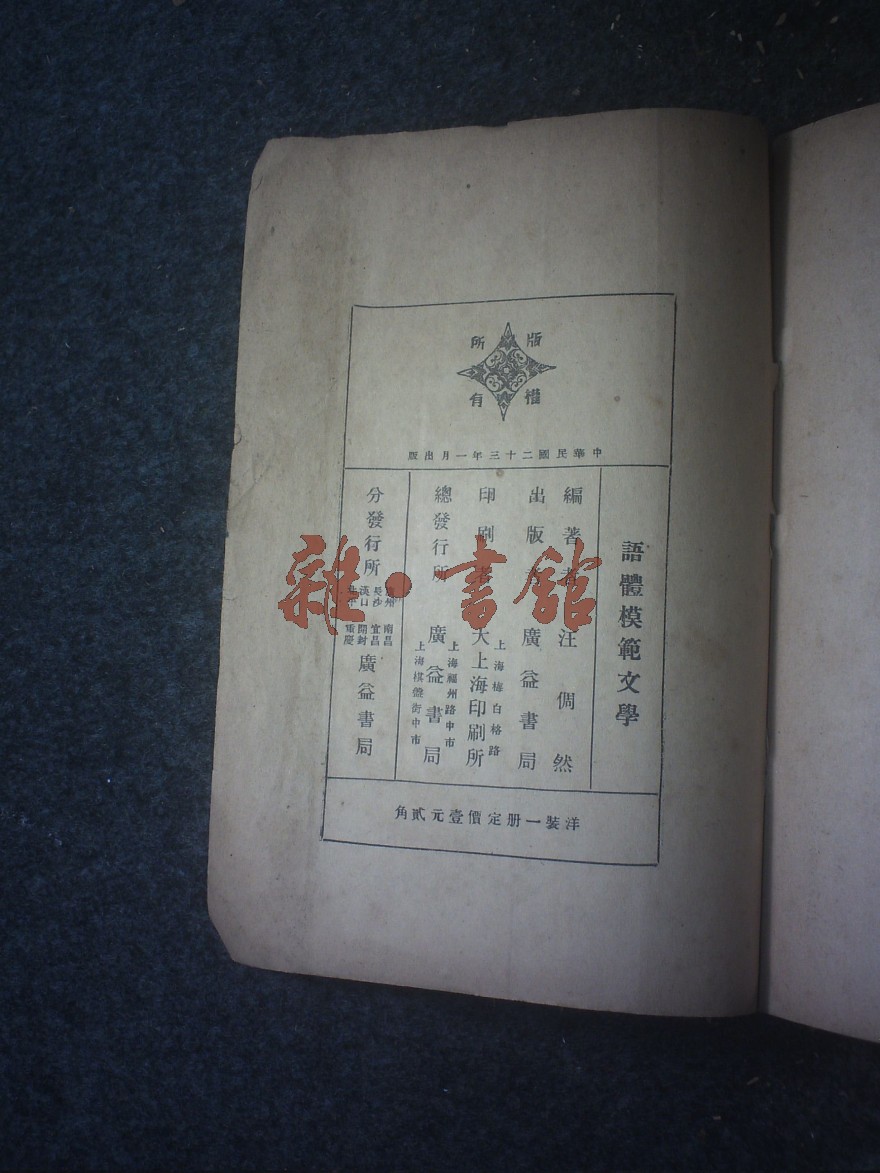 版權所有
中華民國二十三年一月出版
語體模範文學
編著者 汪倜然
出版者 廣益書局
上海梅白格路
印刷者 大上海印刷所
上海福州路中市
總發行所 廣益書局
上海棋盤街中市
分發行所
長沙 漢口
南昌 宜昌 開封 重慶
廣益書局
洋裝一册定價壹元貳角
雜·書館